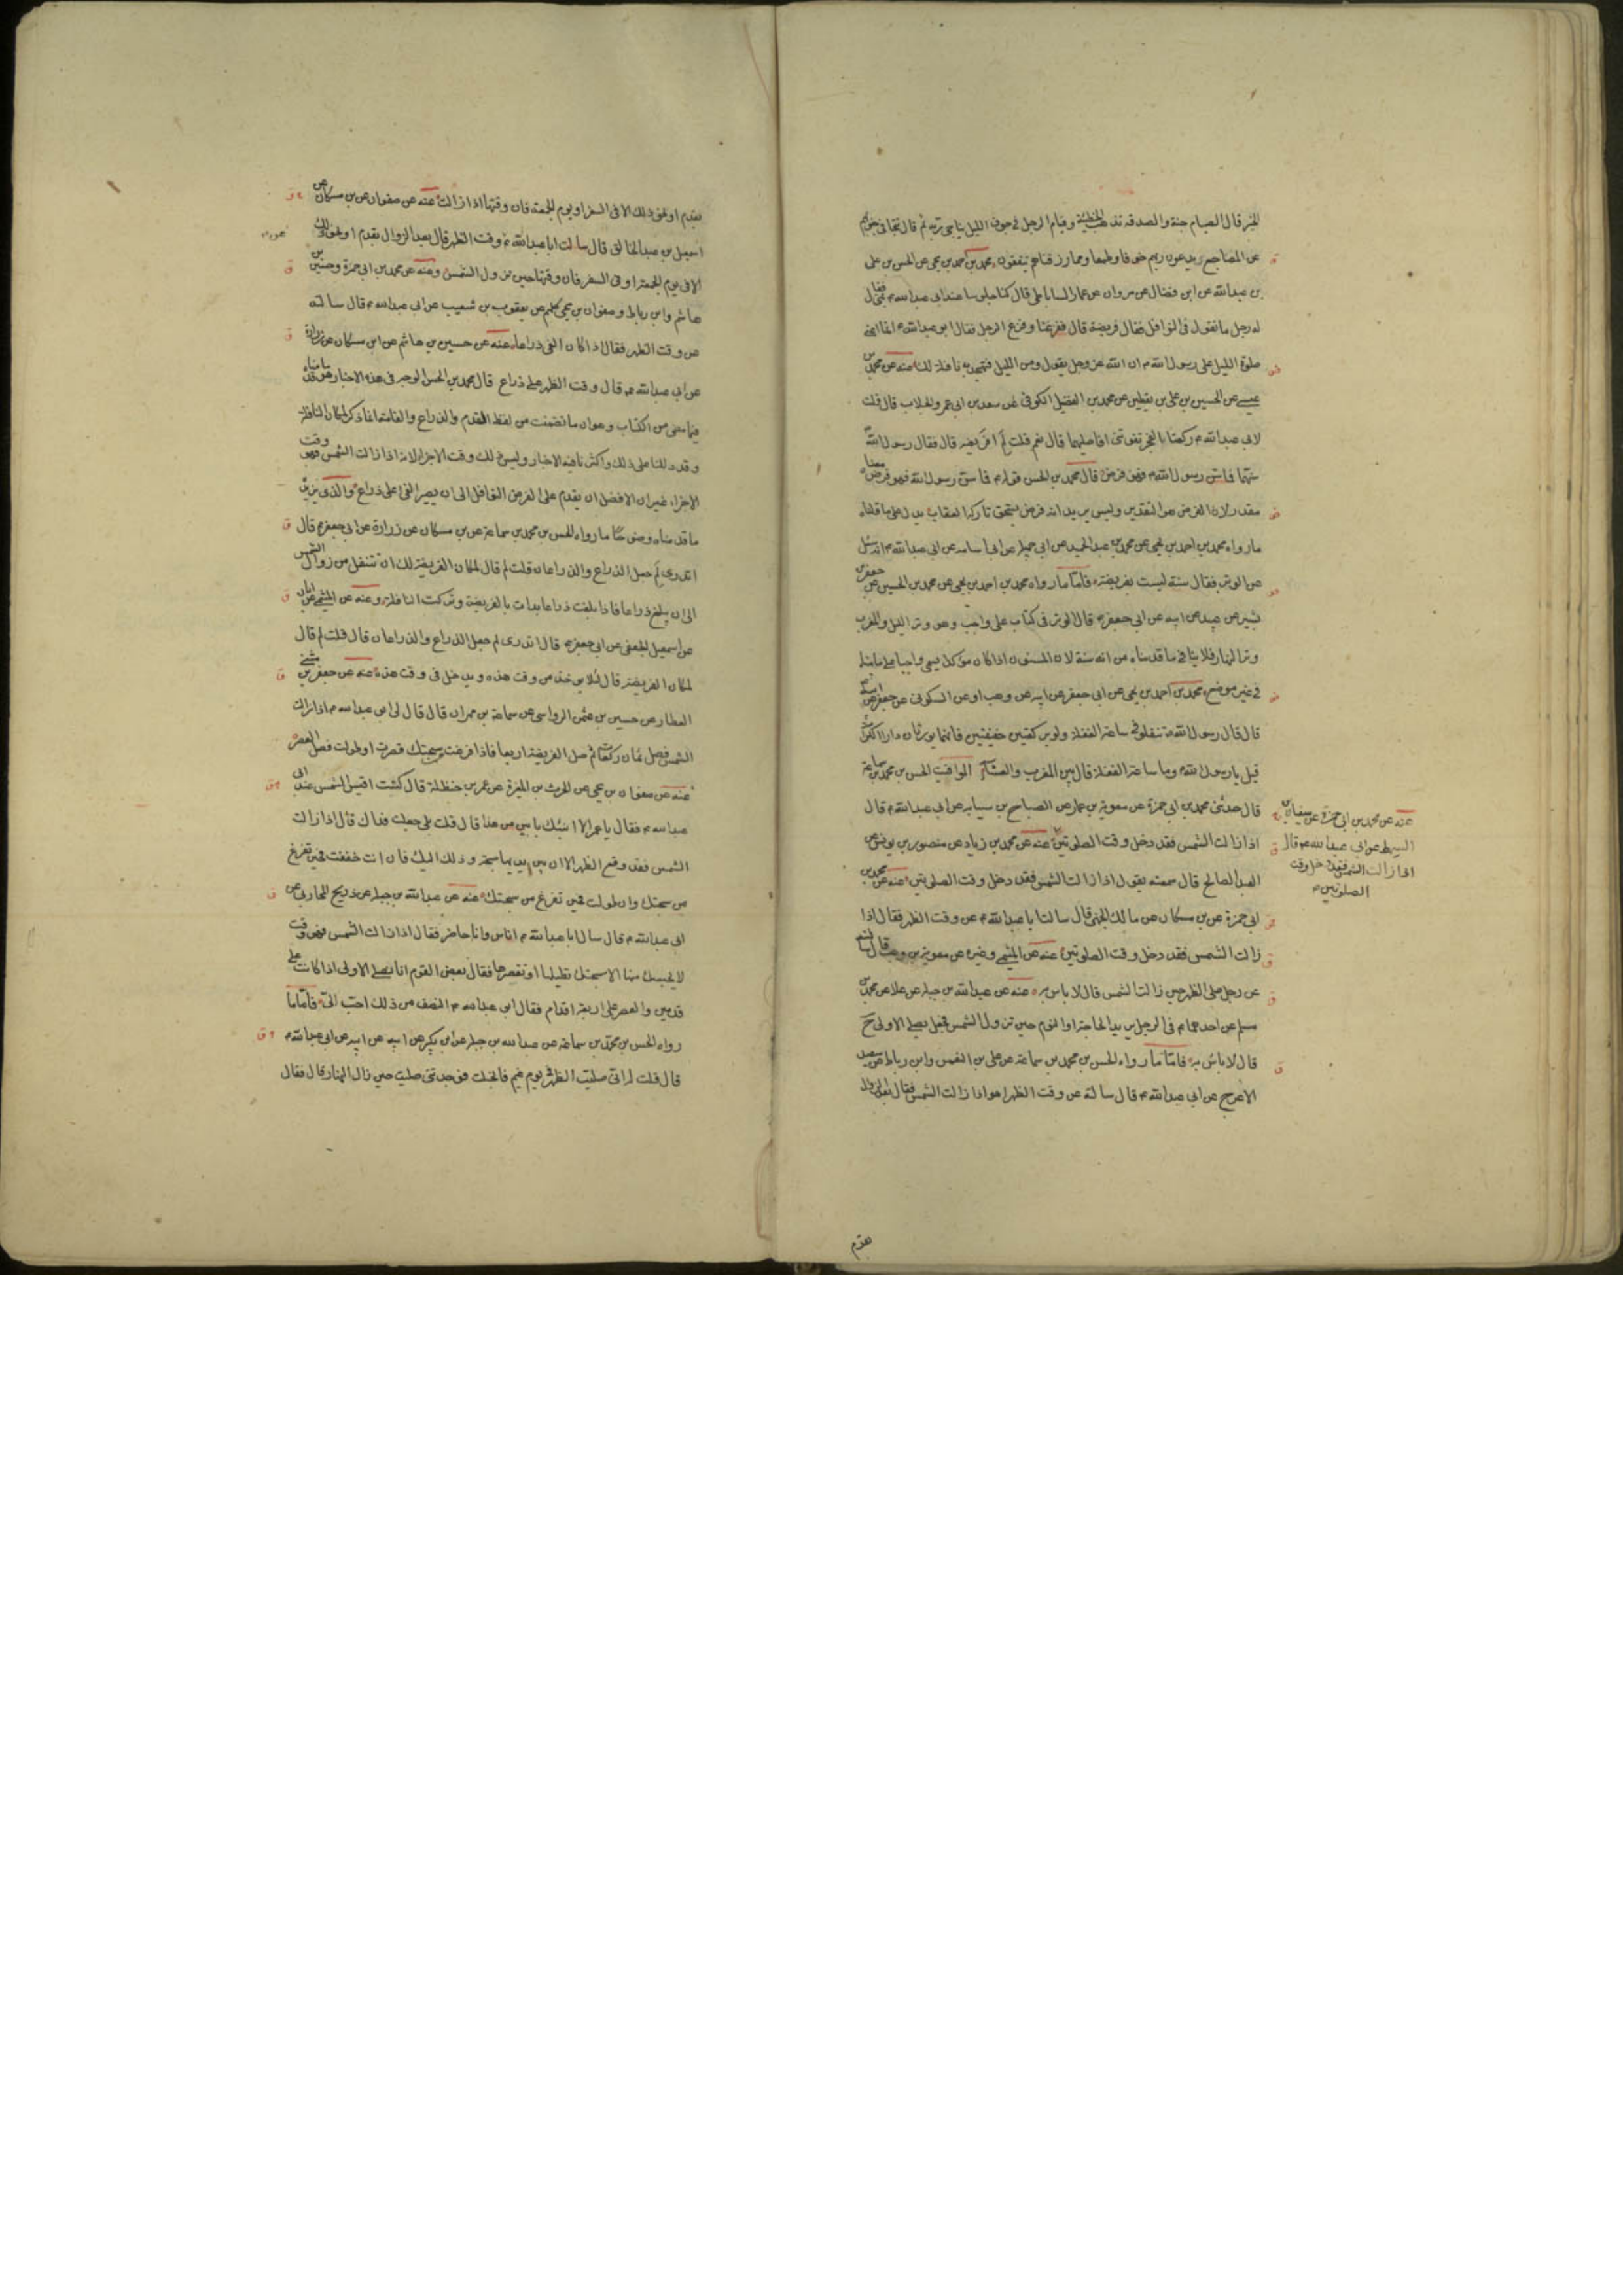 الخير قال الصيام جنة والصدقة تذهب الخطيئة وقيام الرجل في جوف الليل يناجي ربه ثم قال تتجافى جنوبهم
عن المضاجع يدعون ربهم خوفا وطمعا ومما رزقناهم ينفقون محمد بن احمد بن يحيى عن الحسن بن علي
بن عبدالله عن ابن فضال عن مروان عن عمار الساباطي قال كنا جلوسا عند ابي عبدالله م بمنى فقال
له رجل ما تقول في النوافل فقال فريضة قال ففزعنا وفزع الرجل فقال ابو عبدالله م انما اعني
صلوة الليل على رسول الله م ان الله عز وجل يقول ومن الليل فتهجد به نافلة لك عنه عن محمد بن
عيسى عن الحسين بن علي بن يقطين عن محمد بن الفضيل الكوفي عن سعد بن ابي عمرو الجلاب قال قلت
لابي عبدالله م ركعتا الفجر تفوتني افاصليهما قال نعم قلت لم افريضة قال فقال رسول الله
سنهما فما سن رسول الله م فهو فرض قال محمد بن الحسن قوله م فما سن رسول الله فهو فرض معناه
مقدر لان الفرض هو التقدير وليس يريد انه فرض يستحق تاركه العقاب يدل على ما قلناه
ما رواه محمد بن احمد بن يحيى عن محمد بن عبد الحميد عن ابي جميلة عن ابي اسامة عن ابي عبدالله م انه سئل
عن الوتر فقال سنة ليست بفريضة فاما ما رواه محمد بن احمد بن يحيى عن محمد بن الحسين عن جعفر بن
بشير عن عبيد عن ابيه عن ابي جعفر م قال الوتر في كتاب علي واجب وهو وتر الليل والمغرب
وتر النهار فلا ينافي ما قدمناه من انه سنة لان المسنون اذا كان مؤكدا يسمى واجبا على ما بيناه
في غير موضع محمد بن احمد بن يحيى عن ابي جعفر عن ابيه عن وهب او عن السكوني عن جعفر عن ابيه
قال قال رسول الله م تنفلوا في ساعة الغفلة ولو بركعتين خفيفتين فانهما يورثان دار الكرامة
قيل يا رسول الله م وما ساعة الغفلة قال بين المغرب والعشاء المواقيت الحسن بن محمد بن سماعة
قال حدثني محمد بن ابي حمزة عن معوية بن عمار عن الصباح بن سيابه عن ابي عبدالله م قال
اذا زالت الشمس فقد دخل وقت الصلوتين عنه عن محمد بن زياد عن منصور بن يونس عن
العبد الصالح قال سمعته يقول اذا زالت الشمس فقد دخل وقت الصلوتين عنه عن محمد بن
ابي حمزة عن بن مسكان عن مالك الجهني قال سالت ابا عبدالله م عن وقت الظهر فقال اذا
زالت الشمس فقد دخل وقت الصلوتين عنه عن الميثمي وغيره عن معوية بن وهب قال سالته
عن رجل صلى الظهر حين زالت الشمس قال لا باس به عنه عن عبدالله بن جبلة عن علا عن محمد بن
مسلم عن احدهما م في الرجل يريد الحاجة او النوم حين تزول الشمس فجعل يصلي الاولى ح
قال لا باس به فاما ما رواه الحسن بن محمد بن سماعة عن علي بن النعمن وابن رباط عن سعيد
الاعرج عن ابي عبدالله م قال سالته عن وقت الظهر اهو اذا زالت الشمس فقال بعد الزوال
عنه عن محمد بن ابي حمزة عن سفيان بن
السمط عن ابي عبدالله م قال
اذا زالت الشمس فقد دخل وقت
الصلوتين م
بقدم
بقدم او نحو ذلك الا في السفر او يوم الجمعة فان وقتها اذا زالت عنه عن صفوان عن بن مسكان عن
اسمعيل بن عبد الخالق قال سالت ابا عبدالله م وقت الظهر قال بعد الزوال بقدم او نحو ذلك
الا في يوم الجمعة او في السفر فان وقتها حين تزول الشمس وعنه عن محمد بن ابي حمزة وحسين بن
هاشم وابن رباط وصفوان بن يحيى كلهم عن يعقوب بن شعيب عن ابي عبدالله م قال سالته
عن وقت الظهر فقال اذا كان الفي ذراعا عنه عن حسين بن هاشم عن ابن مسكان عن زرارة
عن ابي عبدالله م قال وقت الظهر على ذراع قال محمد بن الحسن الوجه في هذه الاخبار ما بيناه هو قد
فيما مضى من الكتاب وهو ان ما تضمنت من لفظ القدم والذراع والقامة انما ذكر لمكان النافلة
وقد دللنا على ذلك واكثرنا فيه الاخبار وليس ذلك وقت الاجزا لانه اذا زالت الشمس فهو وقت
الاجزاء غير ان الافضل ان يقدم على الفرض النوافل الى ان يصير الفي على ذراع والذي يزيد
ما قدمناه وضوحا ما رواه الحسن بن محمد بن سماعة عن بن مسكان عن زرارة عن ابي جعفر م قال
اتدري لم جعل الذراع والذراعان قلت لم قال لمكان الفريضة لك ان تتنفل من زوال الشمس
الى ان يبلغ ذراعا فاذا بلغت ذراعا بدات بالفريضة وتركت النافلة وعنه عن الميثمي عن ابان
عن اسمعيل الجعفي عن ابي جعفر م قال اتدري لم جعل الذراع والذراعان قال قلت لم قال
لمكان الفريضة قال لئلا يؤخذ من وقت هذه ويدخل في وقت هذه عنه عن جعفر بن مثنى
العطار عن حسين بن عثمن الرواسي عن سماعة بن مهران قال قال لي ابو عبدالله م اذا زالت
الشمس فصل ثمان ركعات ثم صل الفريضة اربعا فاذا فرغت من سبحتك قصرت او طولت فصل العصر
عنه عن صفوان بن يحيى عن الحرث بن المغيرة عن عمر بن حنظلة قال كنت اقيس الشمس عند ابي
عبدالله م فقال يا عمر الا انبئك بابين من هذا قال قلت بلى جعلت فداك قال اذا زالت
الشمس فقد وقع الظهر الا ان بين يديها سبحة وذلك اليك فان انت خففت فحين تفرغ
من سبحتك وان طولت فحين تفرغ من سبحتك عنه عن عبدالله بن جبلة عن ذريح المحاربي عن
ابي عبدالله م قال سال ابا عبدالله م اناس وانا حاضر فقال اذا زالت الشمس فهو وقت
لا يحبسك منها الا سبحتك تطيلها او تقصرها فقال بعض القوم انا نصلي الاولى اذا كانت على
قدمين والعصر على اربعة اقدام فقال ابو عبدالله م النصف من ذلك احب الي فاما ما
رواه الحسن بن محمد بن سماعة عن عبدالله بن جبلة عن ابن بكير عن ابيه عن ابي عبدالله م
قال قلت له اني صليت الظهر في يوم غيم فانجلت فوجدتني صليت حين زال النهار قال فقال